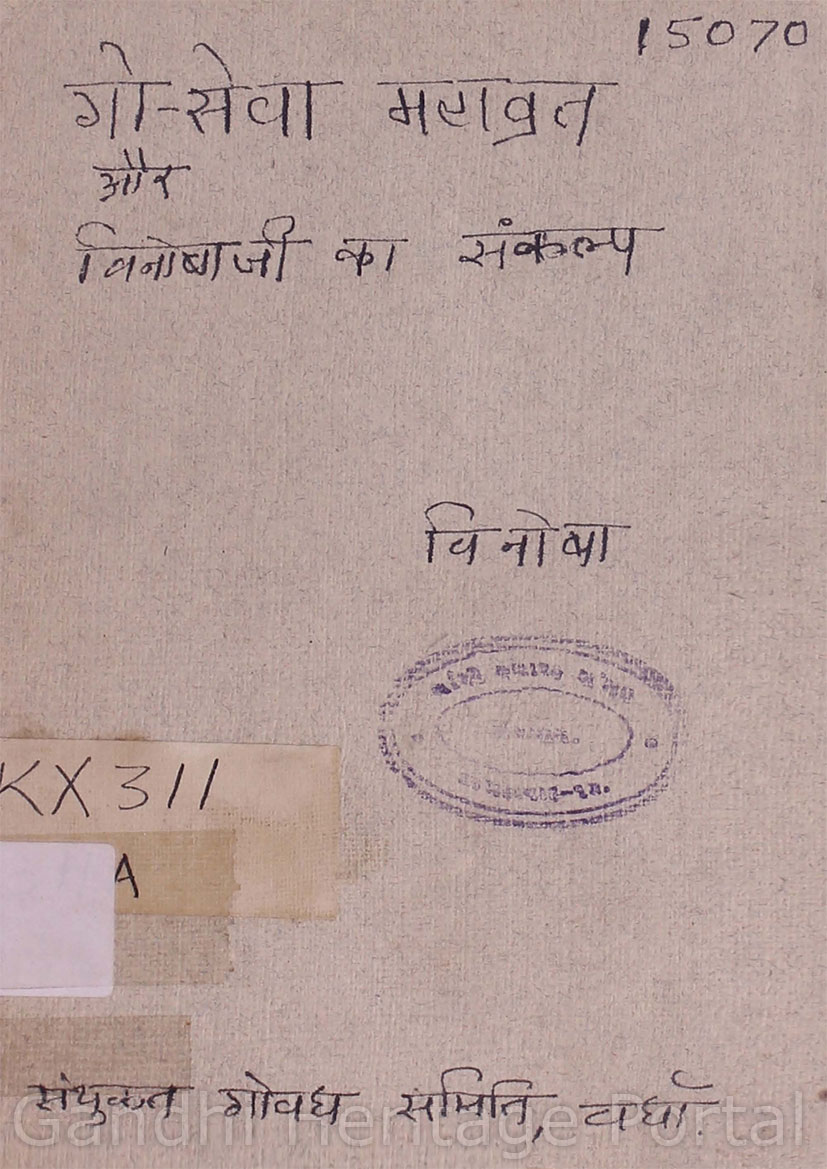 15070
गो-सेवा महाव्रत
और
विनोबाजी का संकल्प
विनोबा
KX311
A
संयुक्त गोवध समिति, वर्धा.
Gandhi Heritage Portal